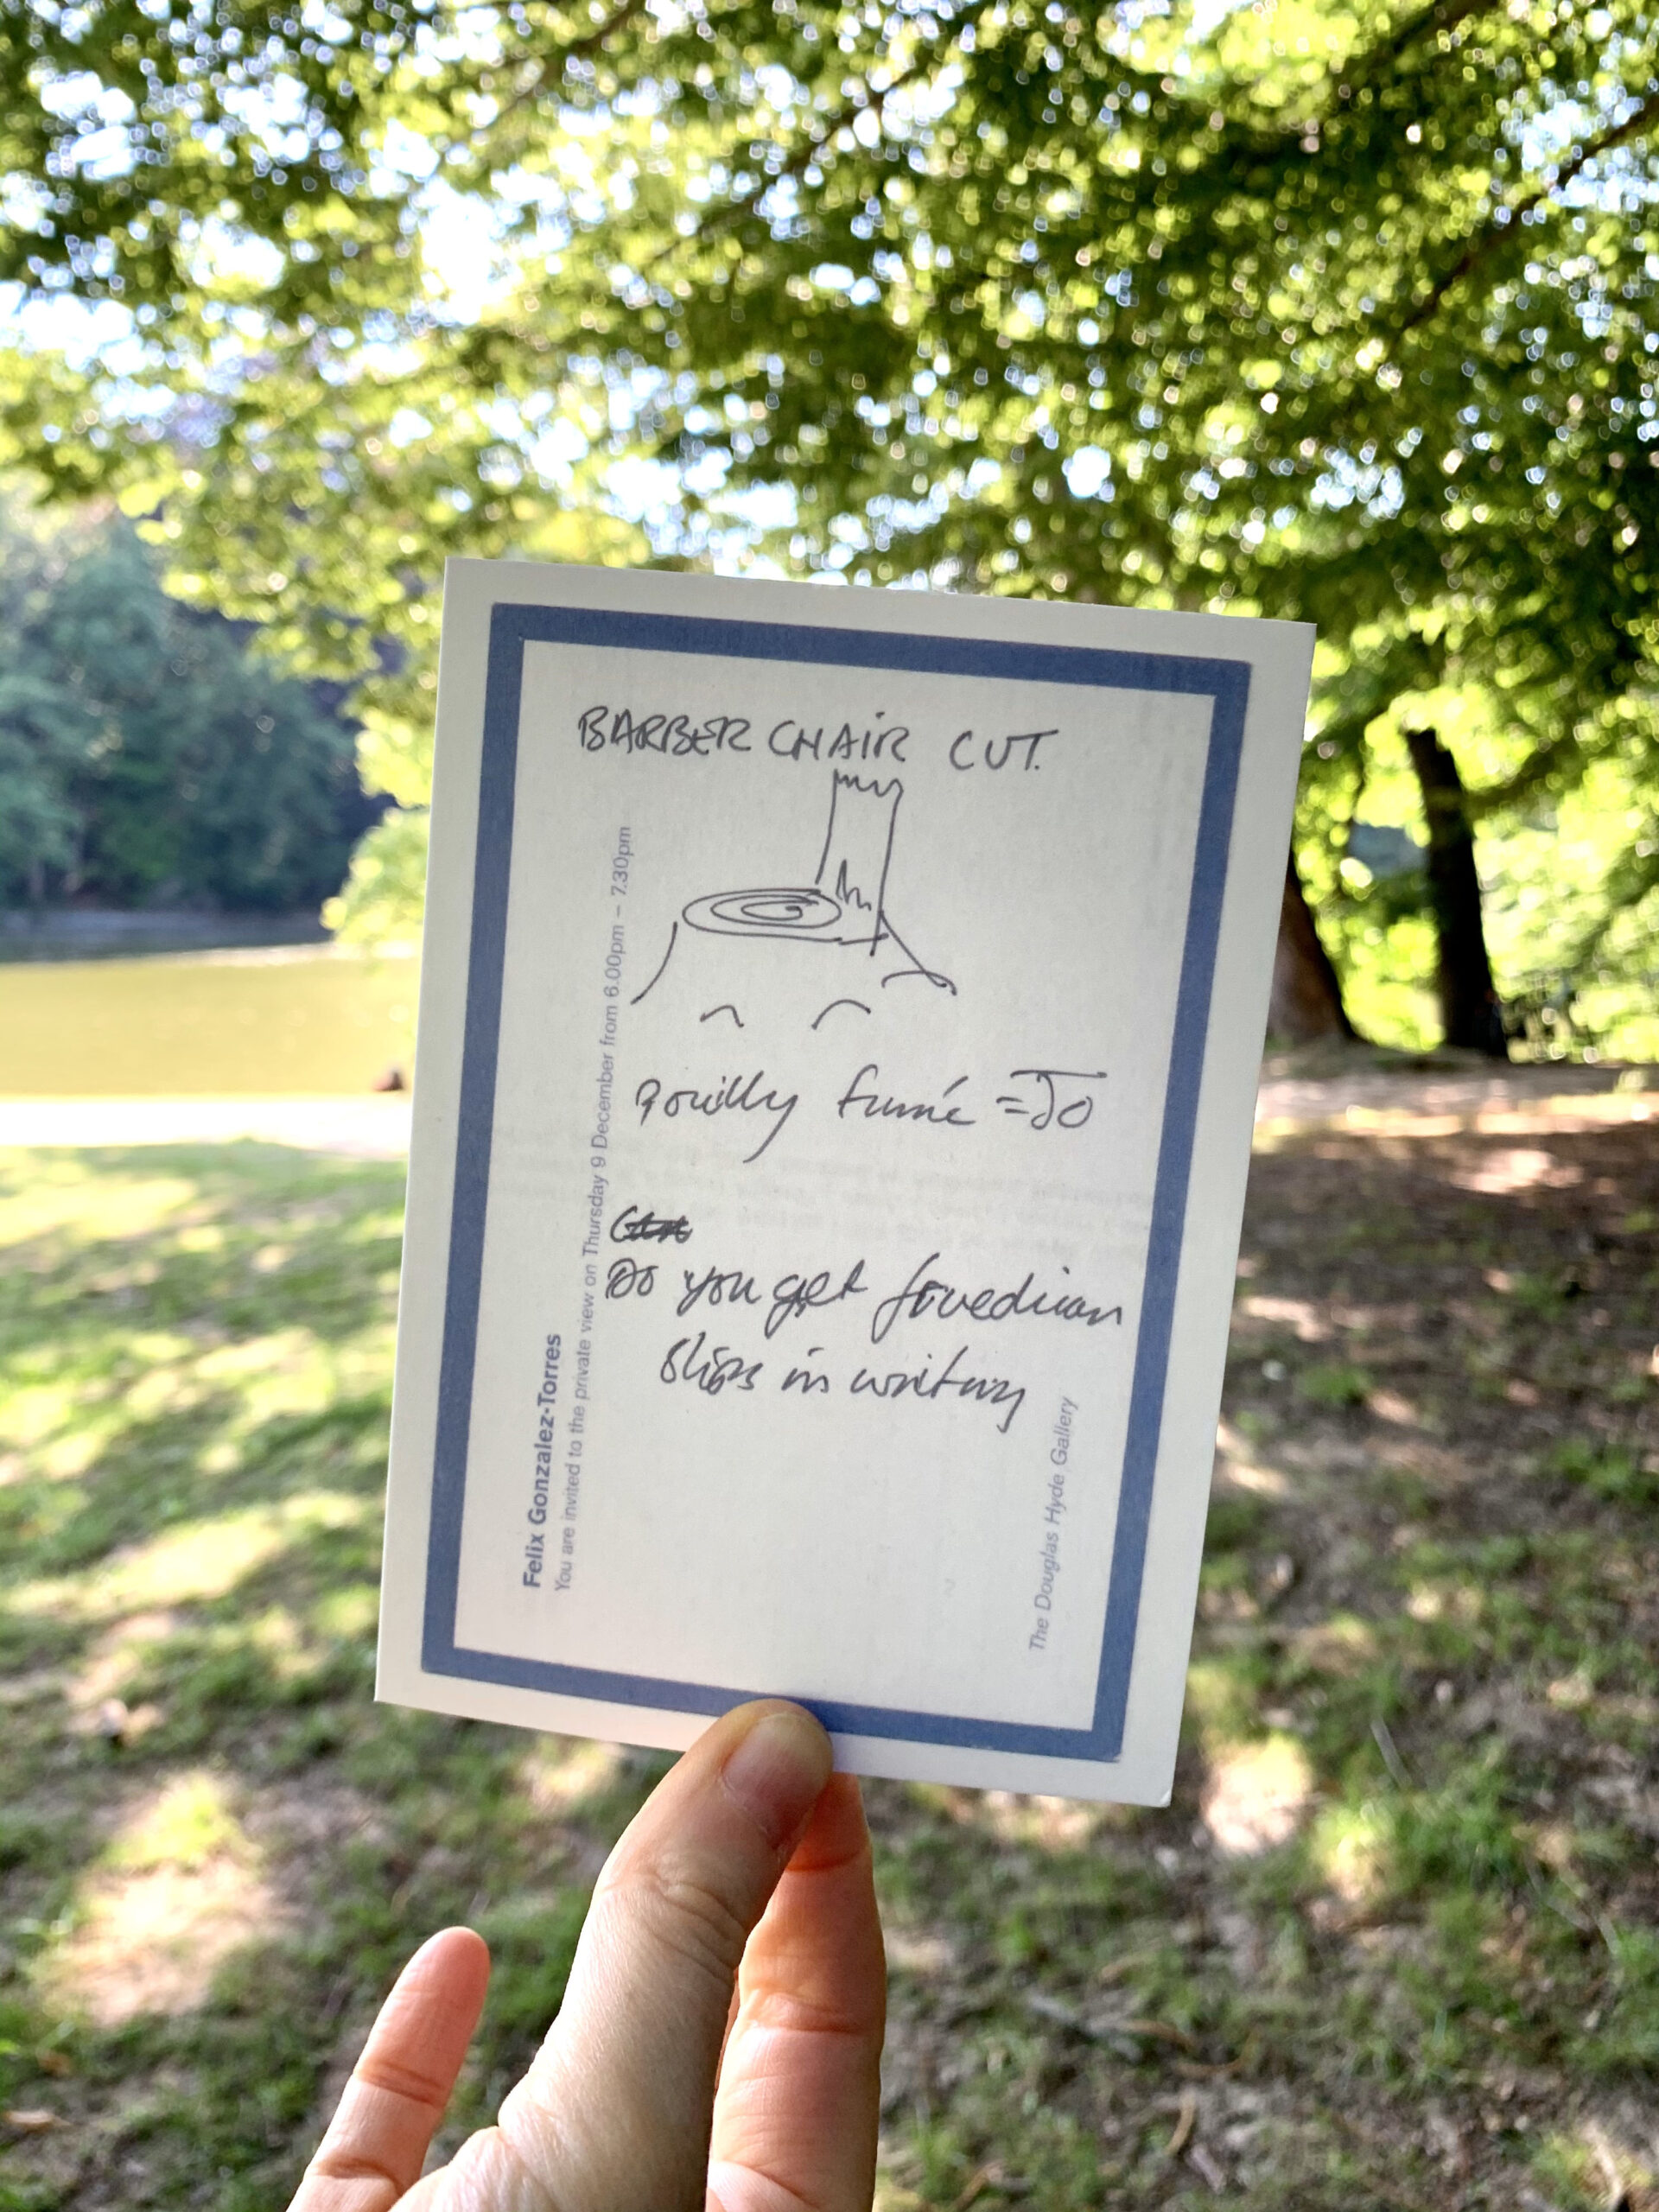 BARBER CHAIR CUT.
pouilly fumé = JO
Do you get froedian
slips in writing
Felix Gonzalez-Torres
You are invited to the private view on Thursday 9 December from 6.00pm – 7.30pm
The Douglas Hyde Gallery